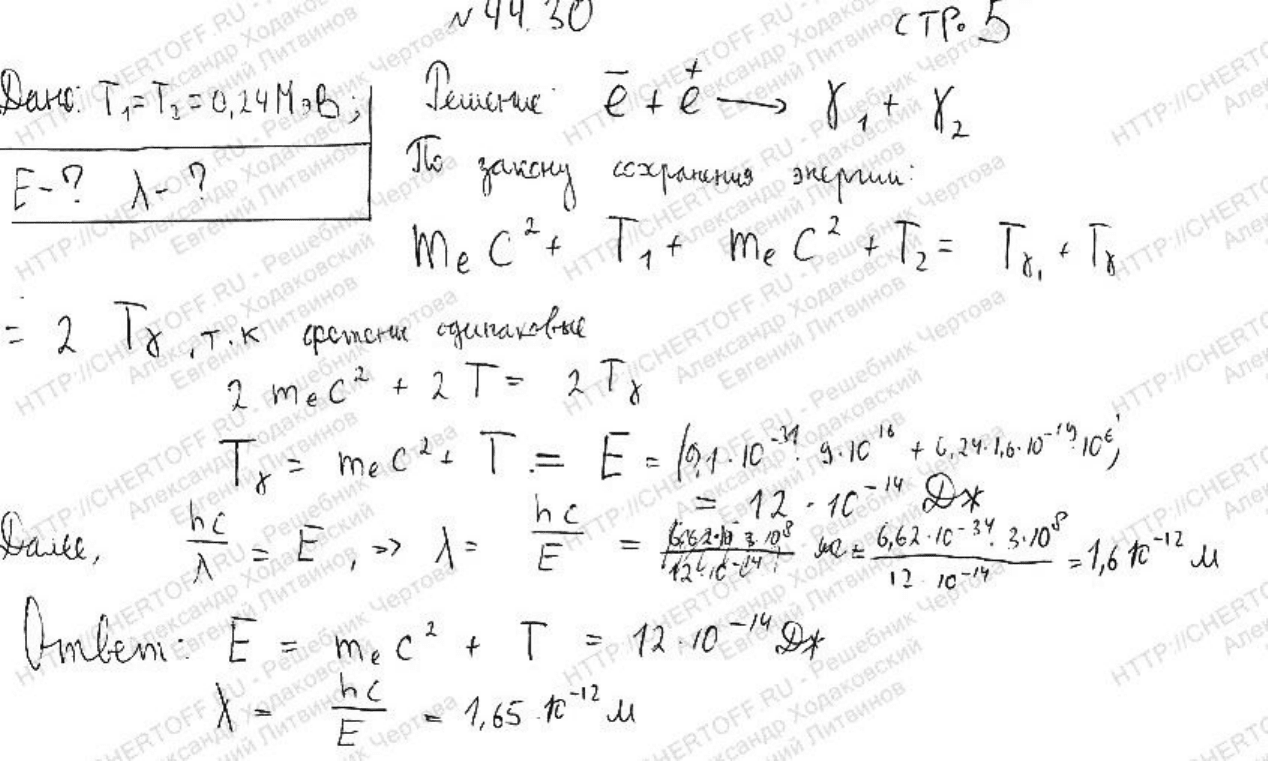 №44.30 стр. 5
Дано: T₁=T₂=0,24МэВ;
E-? λ-?
Решение: e⁻ + e⁺ → γ₁ + γ₂
По закону сохранения энергии:
mₑc² + T₁ + mₑc² + T₂ = Tγ₁ + Tγ
= 2 Tγ, т.к фотоны одинаковые
2 mₑc² + 2T = 2Tγ
Tγ = mₑc² + T = E = (9,1·10⁻³¹·9·10¹⁶ + 0,24·1,6·10⁻¹⁹·10⁶)
= 12·10⁻¹⁴ Дж
Далее, hc/λ = E, => λ = hc/E = = 6,62·10⁻³⁴·3·10⁸/12·10⁻¹⁴ = 1,6 10⁻¹² м
Ответ: E = mₑc² + T = 12·10⁻¹⁴ Дж
λ = hc/E = 1,65·10⁻¹² м
HTTP://CHERTOFF.RU - Решебник Чертова
Александр Ходаковский
Евгений Литвинов